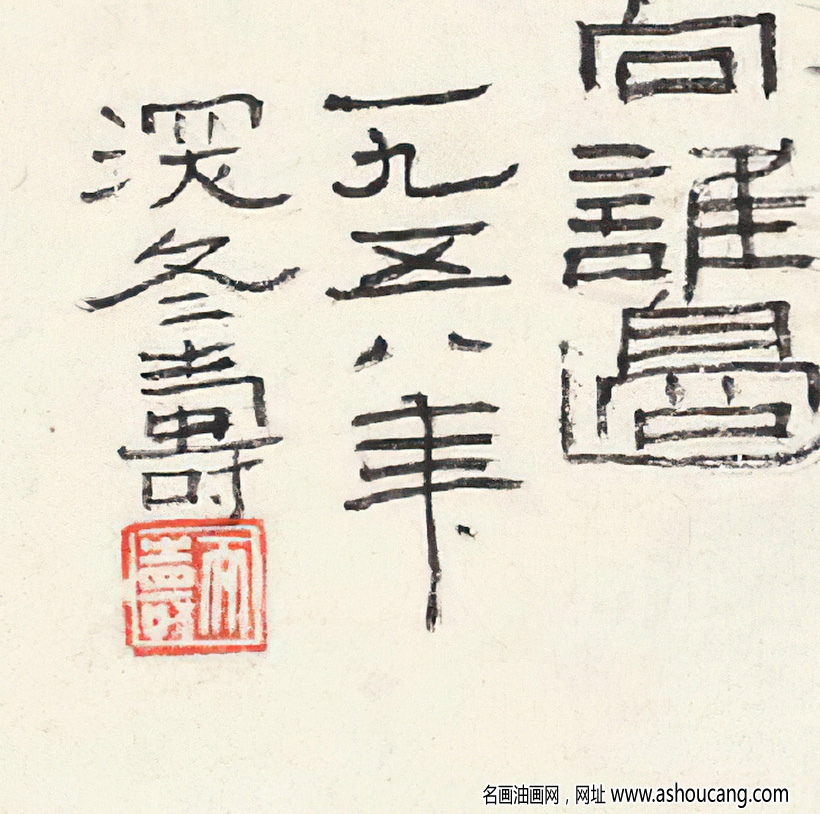 向誰邊
一九五八年
深冬壽
天壽
名画油画网，网址 www.ashoucang.com